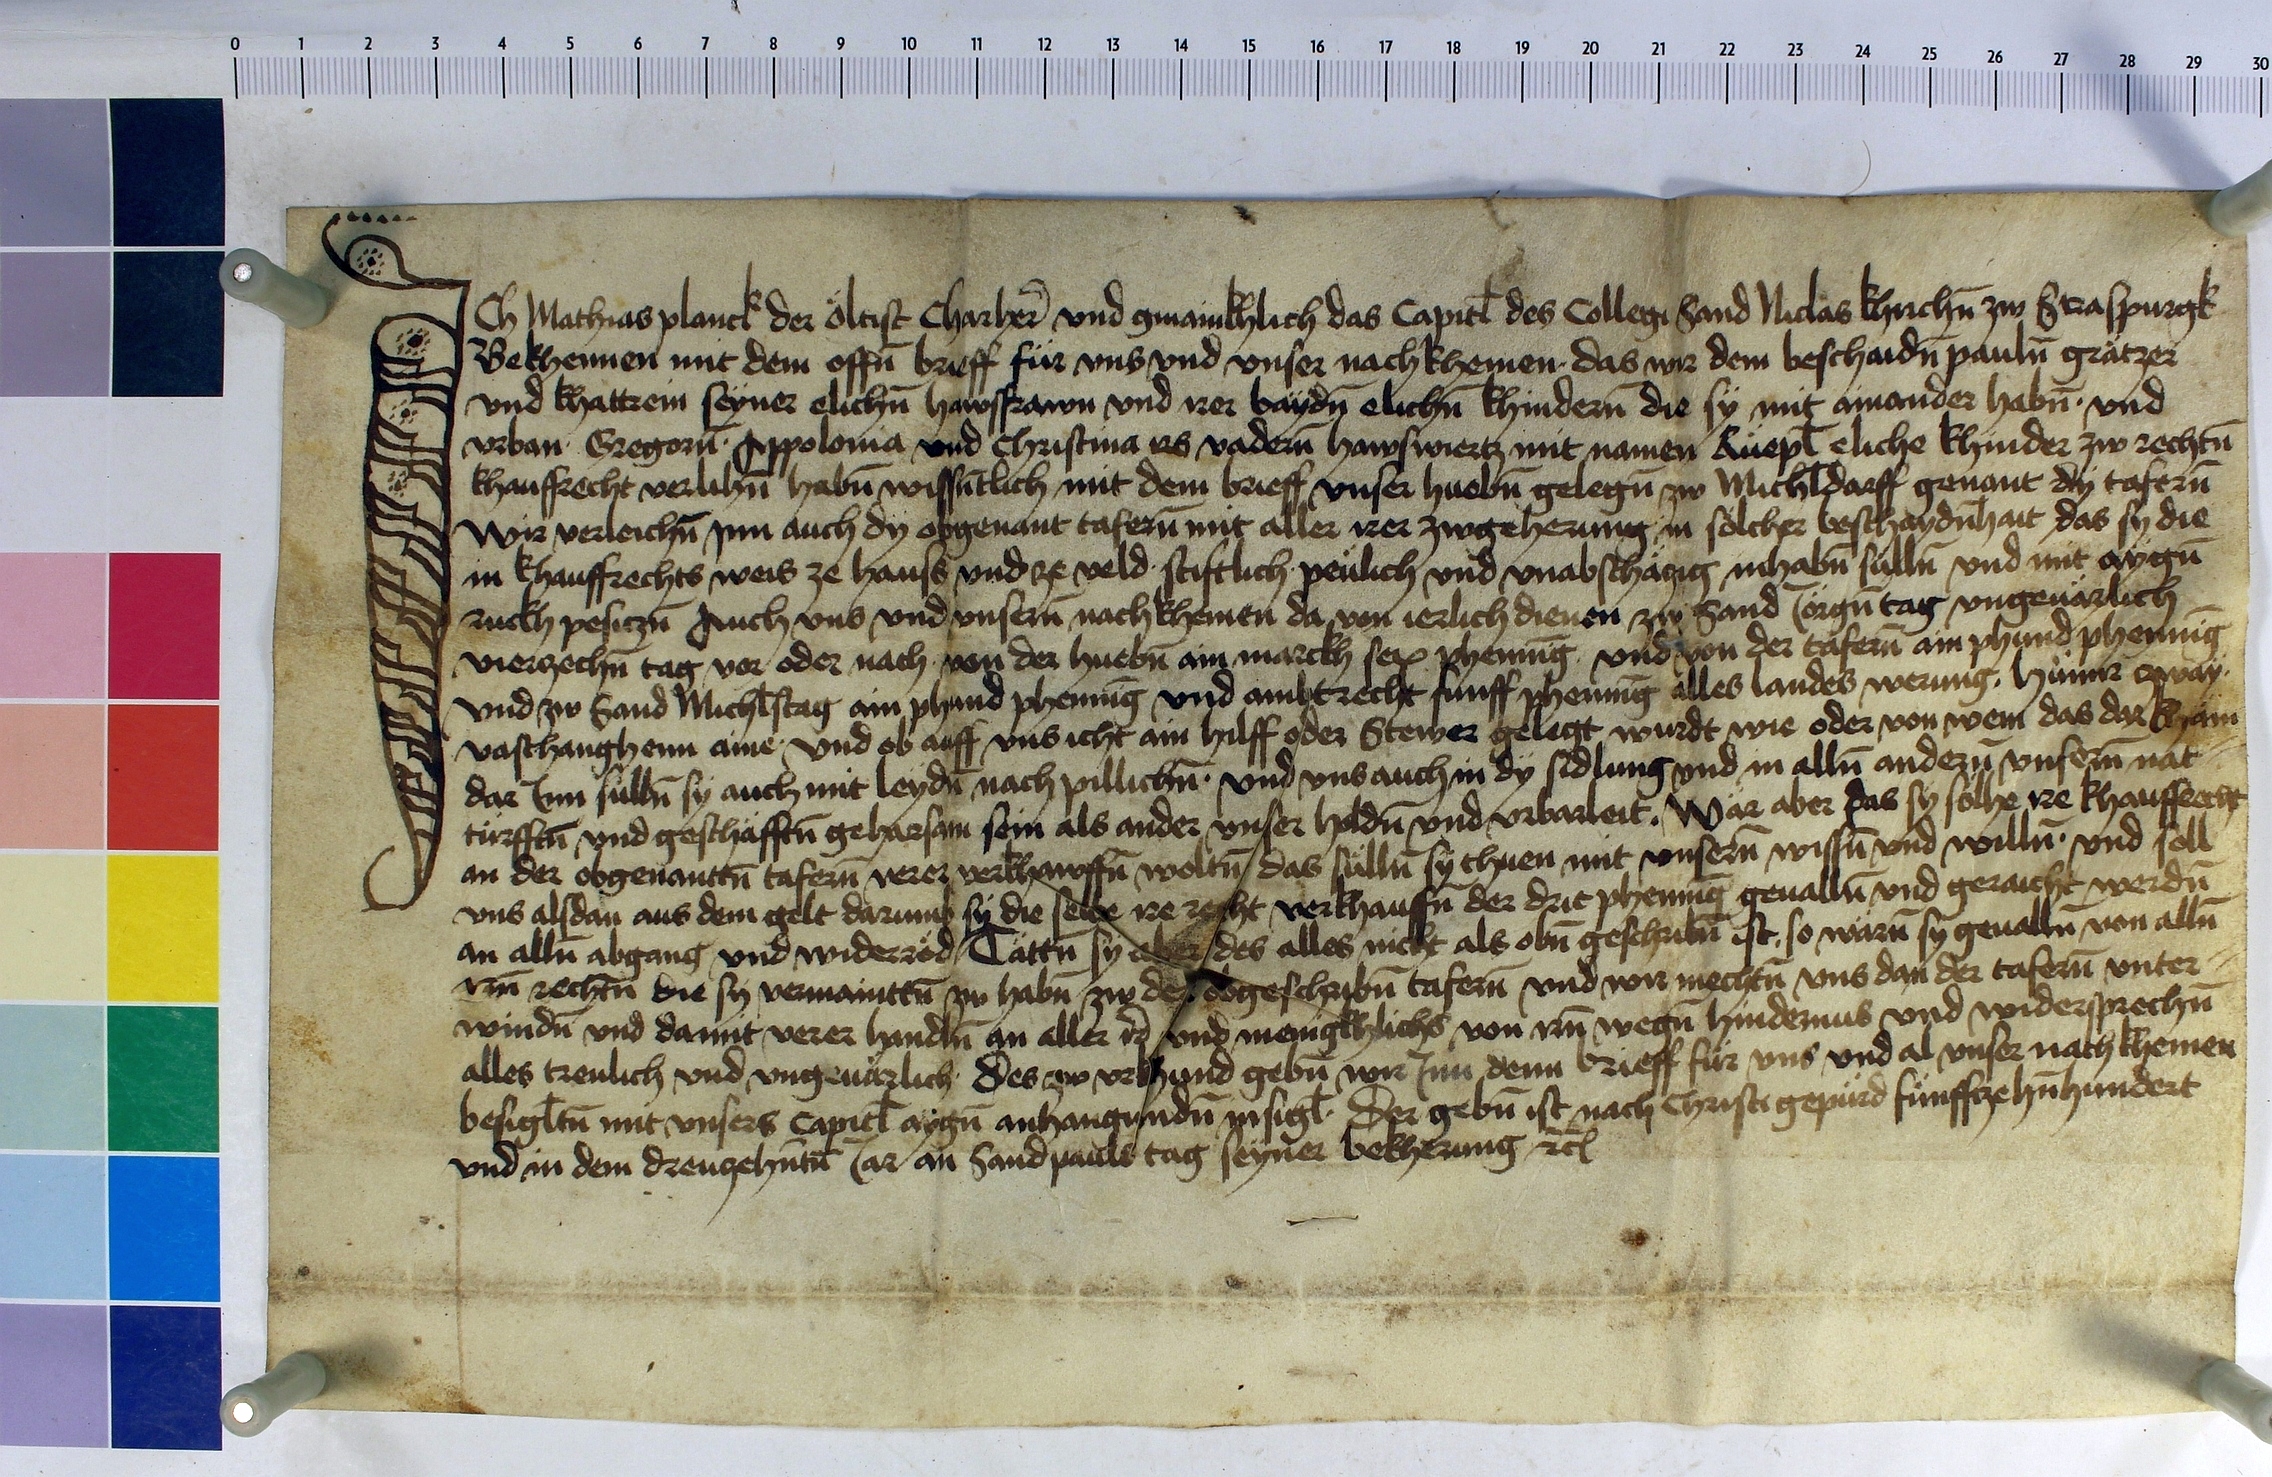 0 1 2 3 4 5 6 7 8 9 10 11 12 13 14 15 16 17 18 19 20 21 22 23 24 25 26 27 28 29 30
ICh Mathias planck der öltist Charher̄ vnd gmainkhlich das Capitl̄ des Collegi Sand Niclas khirchn̄ zw Straspurgk
Bekhennen mit dem offn̄ brieff für vns vnd vnser nachkhemen· das wir dem beschaidn̄ pauln̄ grätzer
vnd khattrein seyner elichn̄ hawsfrawn vnd irer baydn̄ elichn̄ khindern̄ die sy mit ainander habn̄· vnd
vrban· Gregorn̄· Appolonia vnd Christina irs vadern̄ hawswiertz mit namen Rüepl̄ eliche khinder zw rechtn̄
khauffrecht verlihn̄ habn̄ wissn̄tlich mit dem brieff vnser huebn̄ gelegn̄ zw Michl̄darff genant dy tafern̄
Wir verleichn̄ Inn auch dy obgenant tafern̄ mit aller irer zwgeherung in solcher beschaydn̄hait das sy die
in khauffrechts weis ze hauss vnd ze veld· stiftlich· peulich vnd vnabschäczig inhabn̄ sülln̄ vnd mit aygn̄
ruckh pesiczn̄ Auch vns vnd vnsern̄ nachkhemen da von ierlich dienen zw Sand Iorgn̄ tag vngeuärlich
vierzechn̄ tag vor oder nach· von der huebn̄ ain marckh sex phennīg· vnd von der tafern̄ ain phund phennīg
vnd zw Sand Michl̄stag ain phund phennīg vnd ambtrecht funff phennīg alles landes werung. hüner zway·
vaschanghenn aine· vnd ob auff vns icht ain hilff oder Stewer gelegt wurdt wie oder von wem das dar khäm
dar Inn sülln̄ sy auch mit leydn̄ nach pillichn̄· vnd vns auch in dy sidlung vnd in alln̄ andern̄ vnsern̄ nat
türfftn̄ vnd geschäfftn̄ geharsam sein als ander vnser holdn̄ vnd vrbarleit. Wär aber das sy solhe ire khauffrecht
an der obgenanttn̄ tafern̄ verer verkhawffn̄ woltn̄ das sülln̄ sy thuen mit vnsern̄ wissn̄ vnd willn̄· vnd soll
vns alsdan aus dem gelt darumb sy die selbe ire recht verkhauffn̄ der drit phennīg geualln̄ vnd geraicht werdn̄
an alln̄ abgang vnd widerröd Tättn̄ sy aber des alles nicht als obn̄ geschribn̄ ist. so wärn̄ sy geualln̄ von alln̄
irn̄ rechtn̄ die sy vermainttn̄ zw habn̄ zw der obgeschribn̄ tafern̄ vnd wir mechtn̄ vns dan der tafern̄ vnter
windn̄ vnd damit verer handln̄ an aller ir̄ vnd menigkhlichs von irn̄ wegn̄ hindernus vnd widersprechn̄
alles treulich vnd vngeuärlich· Des zw vrkhund gebn̄ wir Inn denn brieff für vns vnd al vnser nachkhemen
besigl̄tn̄ mit vnsers Capitl̄ aygn̄ anhangundn̄ insigl̄· Der gebn̄ ist nach Christi gepürd fünffzehn̄hundert
vnd in dem dreuzehn̄tn̄ Iar an Sand pauls tag seyner bekherung rc̄